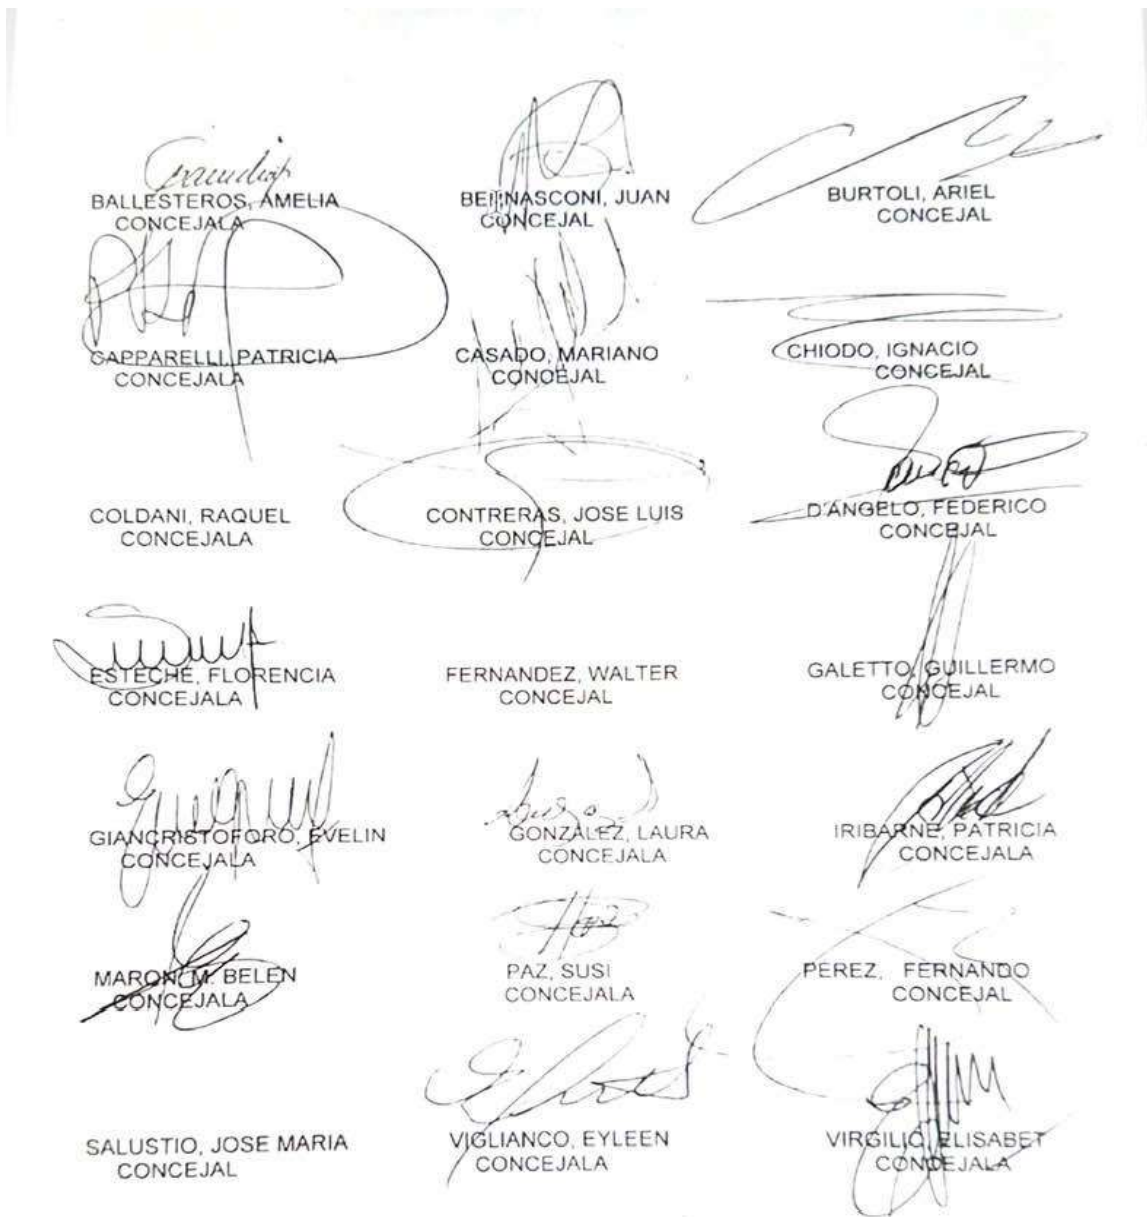 BALLESTEROS, AMELIA
CONCEJALA
BERNASCONI, JUAN
CONCEJAL
BURTOLI, ARIEL
CONCEJAL
CAPPARELLI, PATRICIA
CONCEJALA
CASADO, MARIANO
CONCEJAL
CHIODO, IGNACIO
CONCEJAL
COLDANI, RAQUEL
CONCEJALA
CONTRERAS, JOSE LUIS
CONCEJAL
D'ANGELO, FEDERICO
CONCEJAL
ESTECHE, FLORENCIA
CONCEJALA
FERNANDEZ, WALTER
CONCEJAL
GALETTO, GUILLERMO
CONCEJAL
GIANCRISTOFORO, EVELIN
CONCEJALA
GONZALEZ, LAURA
CONCEJALA
IRIBARNE, PATRICIA
CONCEJALA
MARON, M. BELEN
CONCEJALA
PAZ, SUSI
CONCEJALA
PEREZ, FERNANDO
CONCEJAL
SALUSTIO, JOSE MARIA
CONCEJAL
VIGLIANCO, EYLEEN
CONCEJALA
VIRGILIO, ELISABET
CONCEJALA